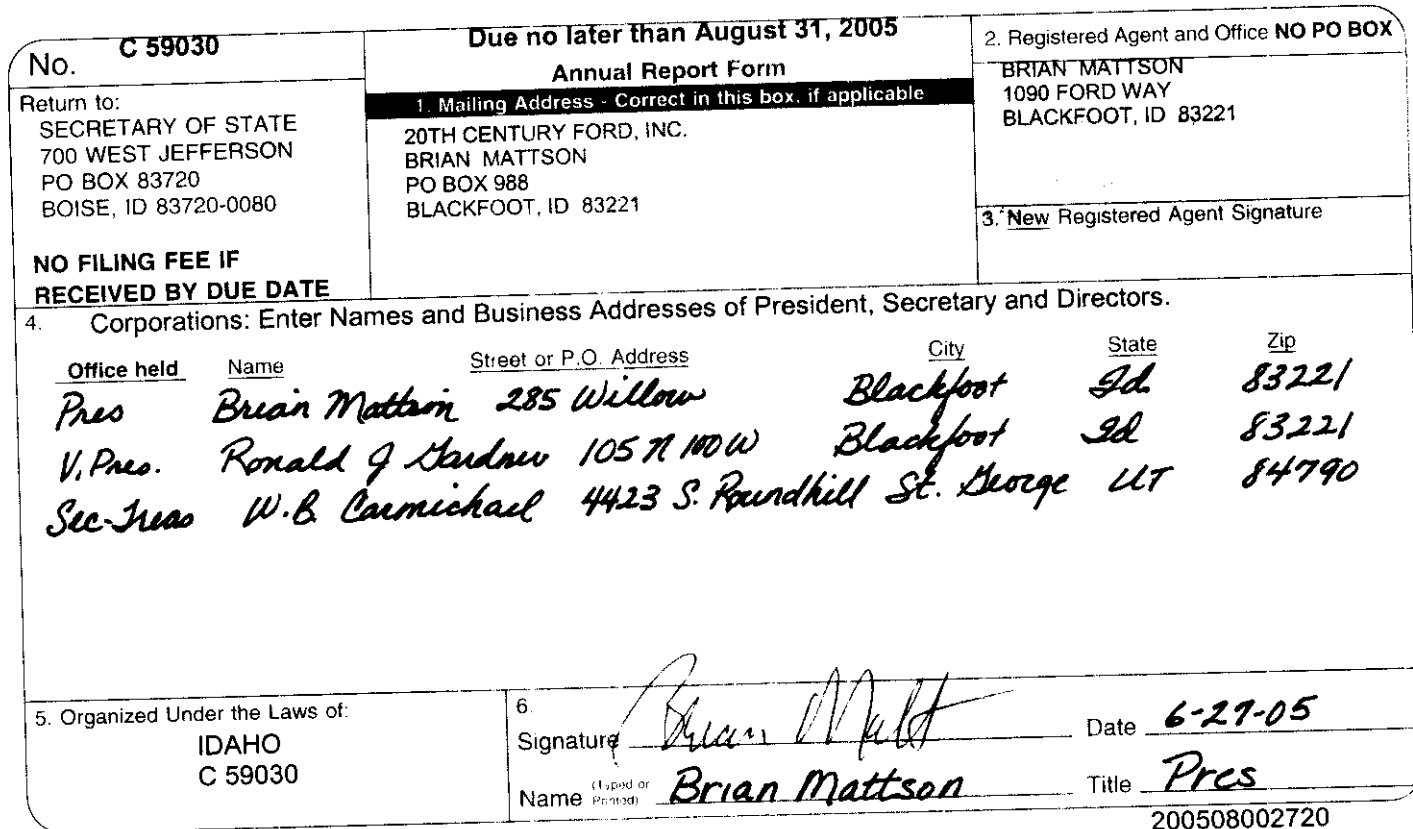 No. C 59030
Return to:
SECRETARY OF STATE
700 WEST JEFFERSON
PO BOX 83720
BOISE, ID 83720-0080
NO FILING FEE IF
RECEIVED BY DUE DATE
Due no later than August 31, 2005
Annual Report Form
1. Mailing Address - Correct in this box, if applicable
20TH CENTURY FORD, INC.
BRIAN MATTSON
PO BOX 988
BLACKFOOT, ID 83221
2. Registered Agent and Office NO PO BOX
BRIAN MATTSON
1090 FORD WAY
BLACKFOOT, ID 83221
3. New Registered Agent Signature
4. Corporations: Enter Names and Business Addresses of President, Secretary and Directors.
Office held Name Street or P.O. Address City State Zip
Pres Brian Mattson 285 Willow Blackfoot Id. 83221
V. Pres. Ronald J Gardner 105 N 100 W Blackfoot Id 83221
Sec-Treas W.B. Carmichael 4423 S. Roundhill St. George UT 84790
5. Organized Under the Laws of:
IDAHO
C 59030
6.
Signature Brian Matt Date 6-27-05
Name (Typed or Printed) Brian Mattson Title Pres
200508002720